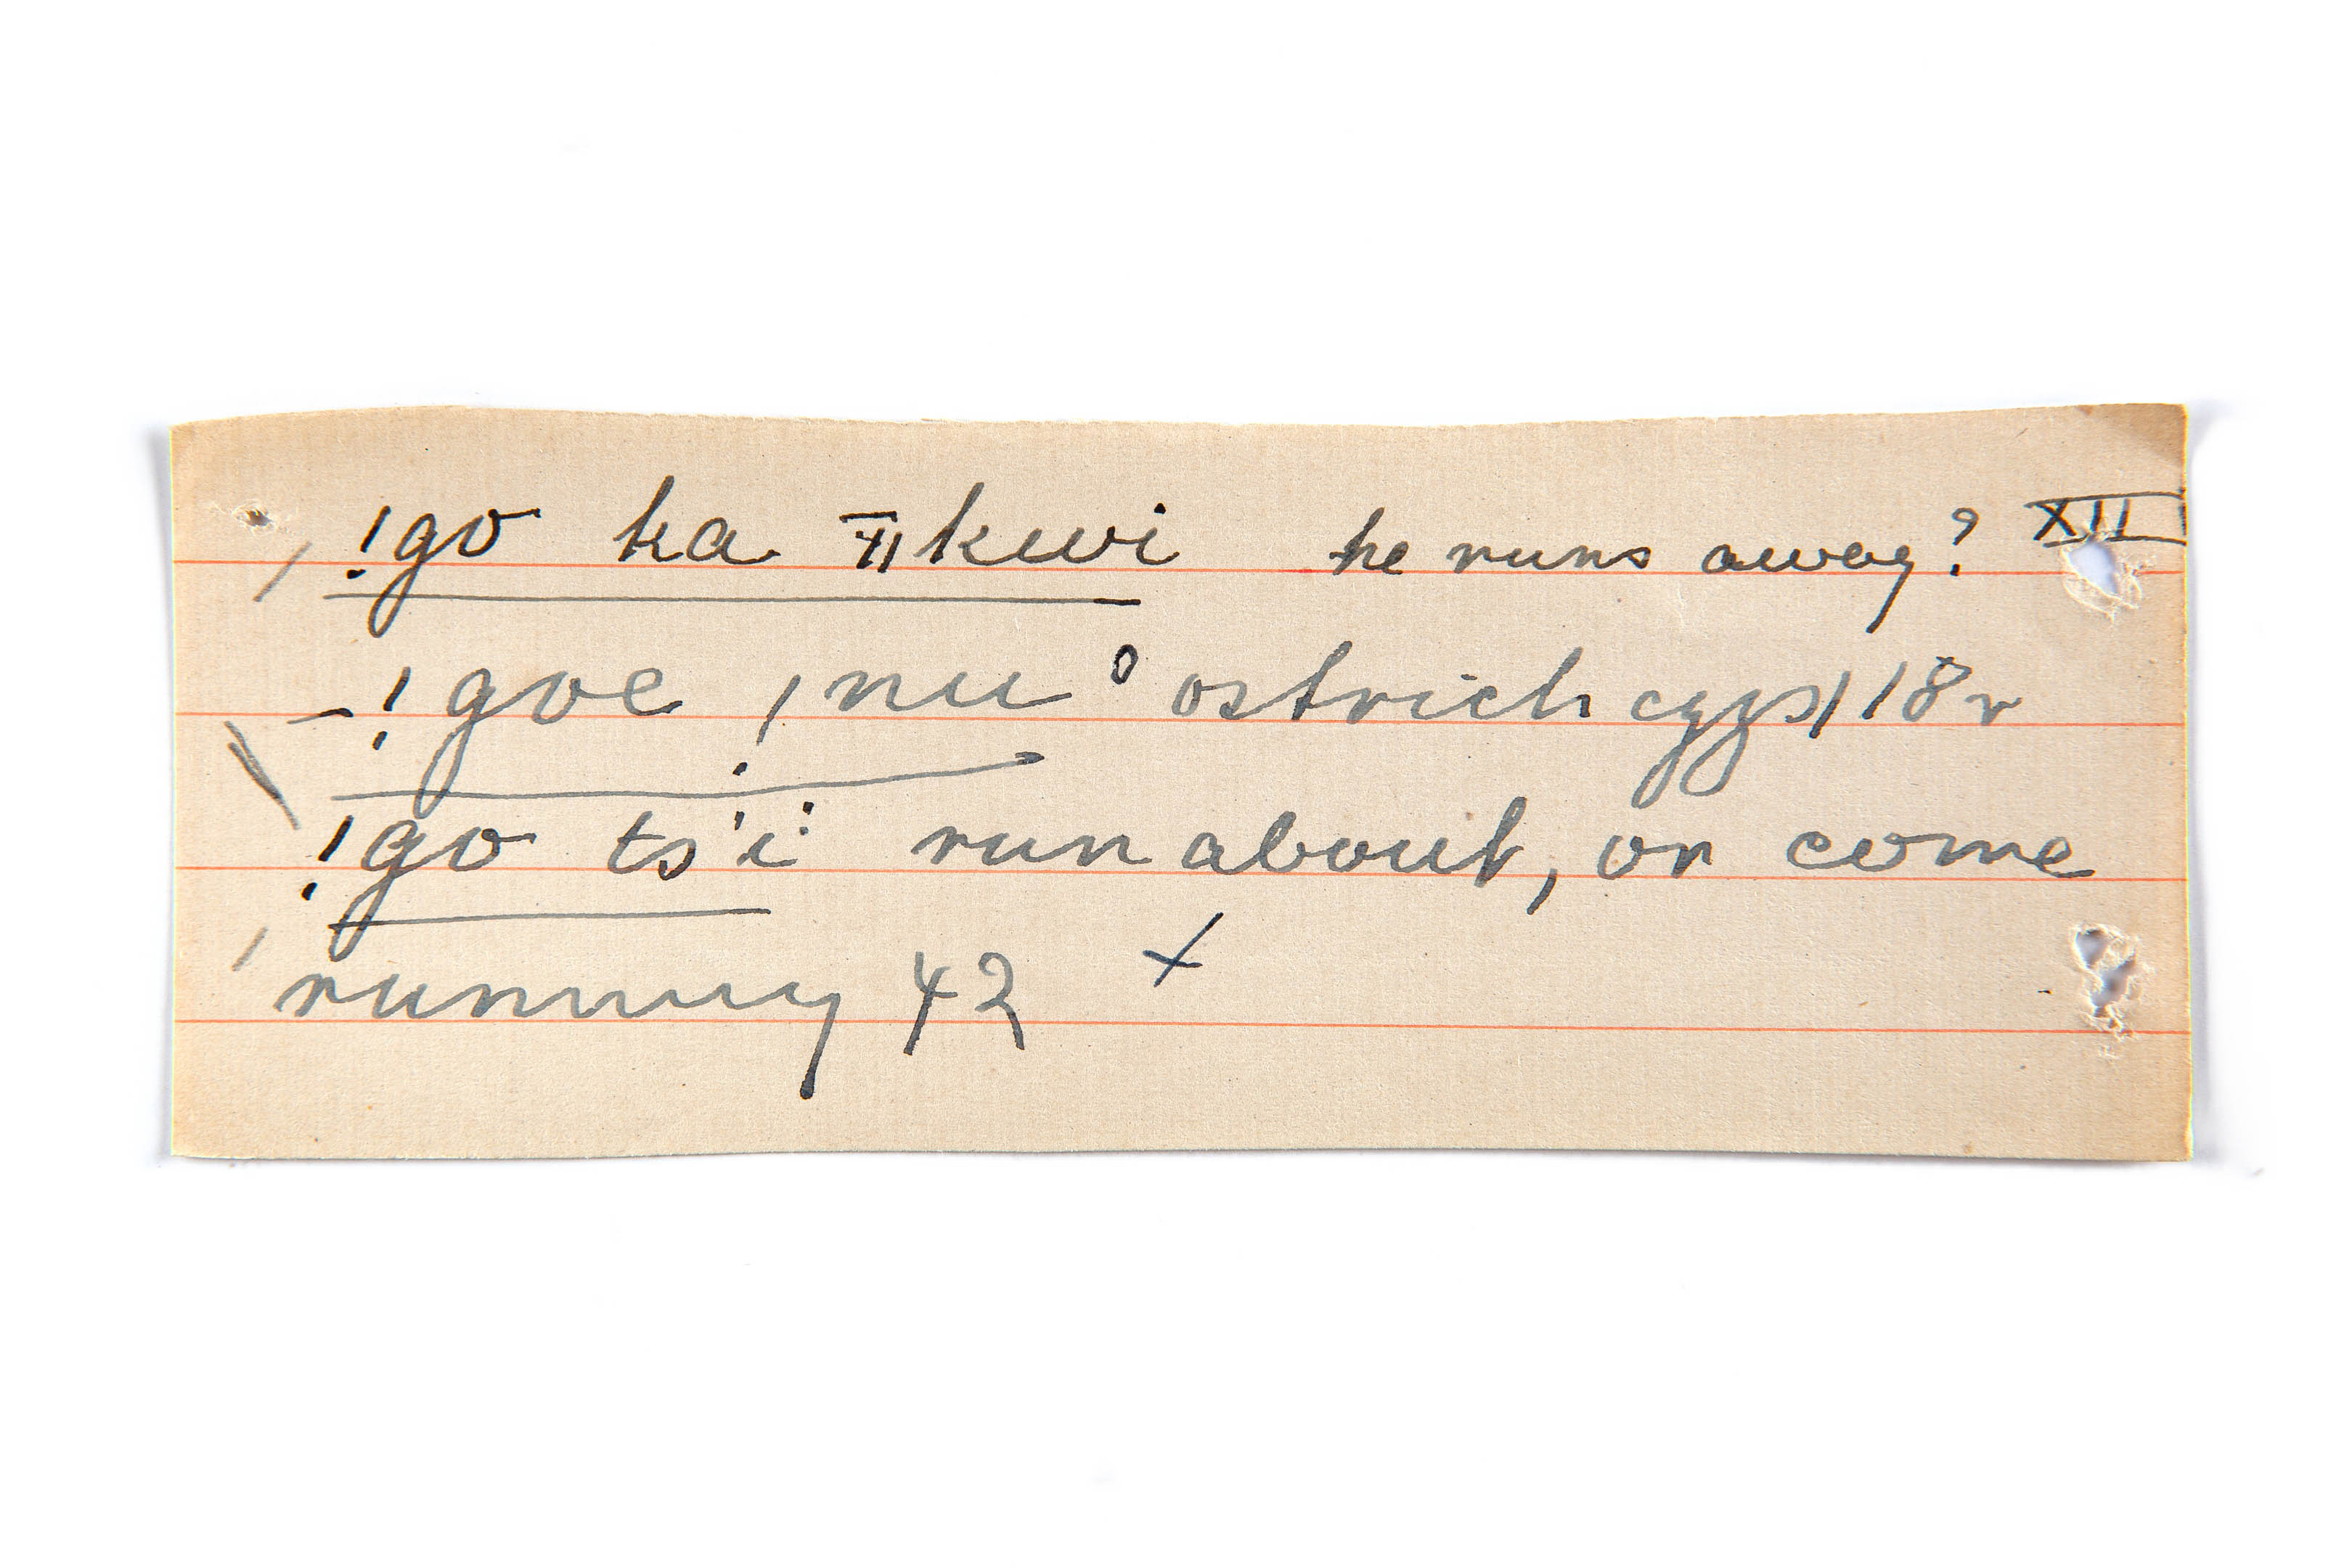 !go ka ǂkwi he runs away? XII
!goe !nu° ostrich eggs 118v
!go ts'i run about, or come
running 42 x